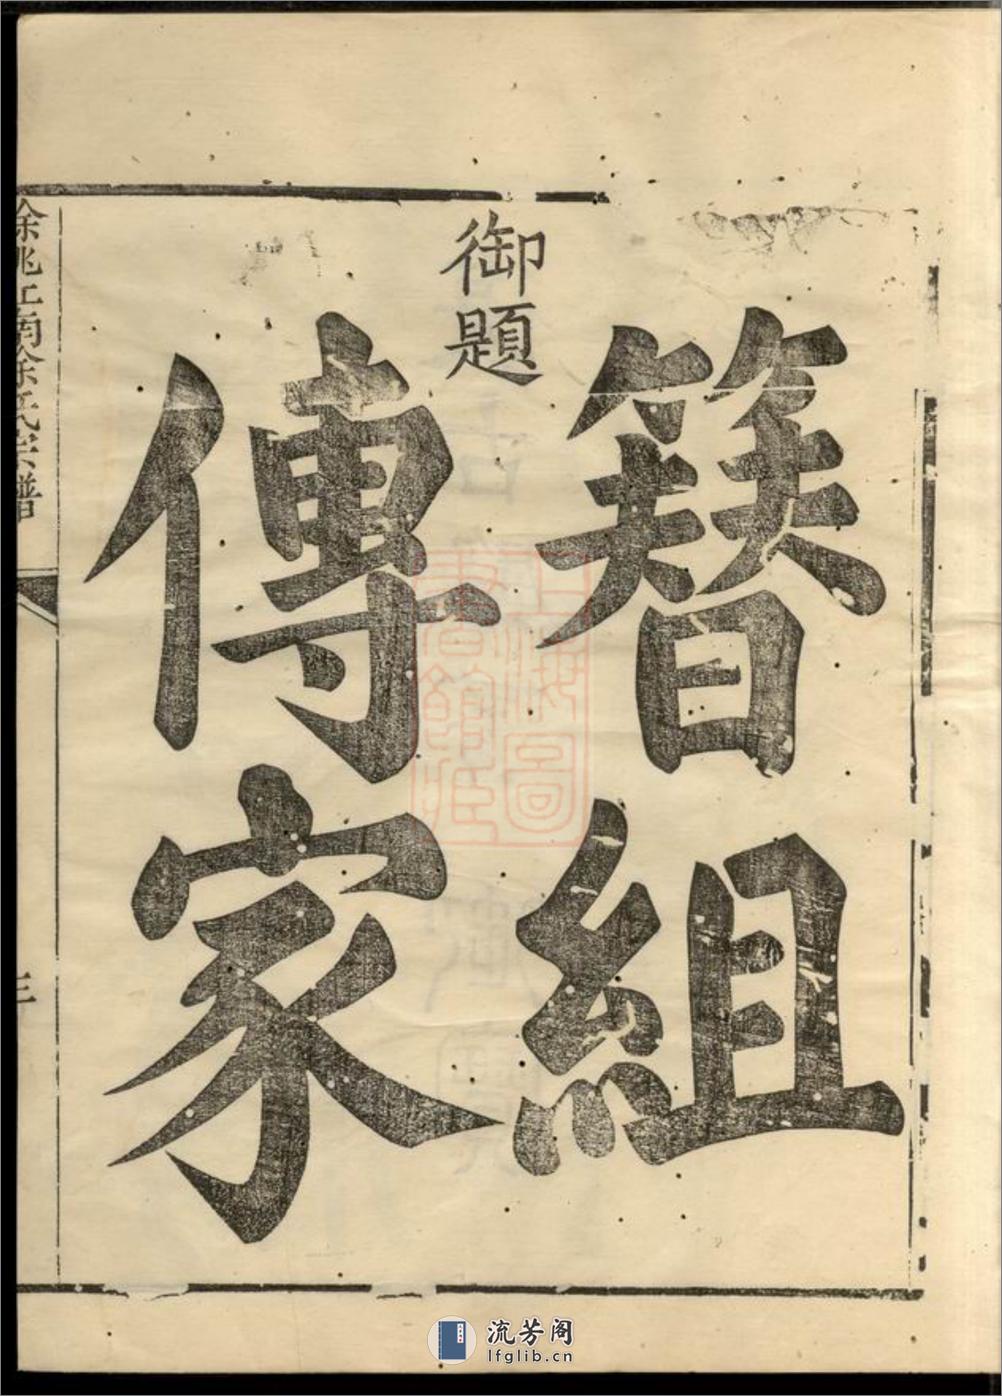 御題
簪組
傳家
餘姚江南徐氏宗譜
三
上海圖
書館藏
流芳阁
lfglib.cn